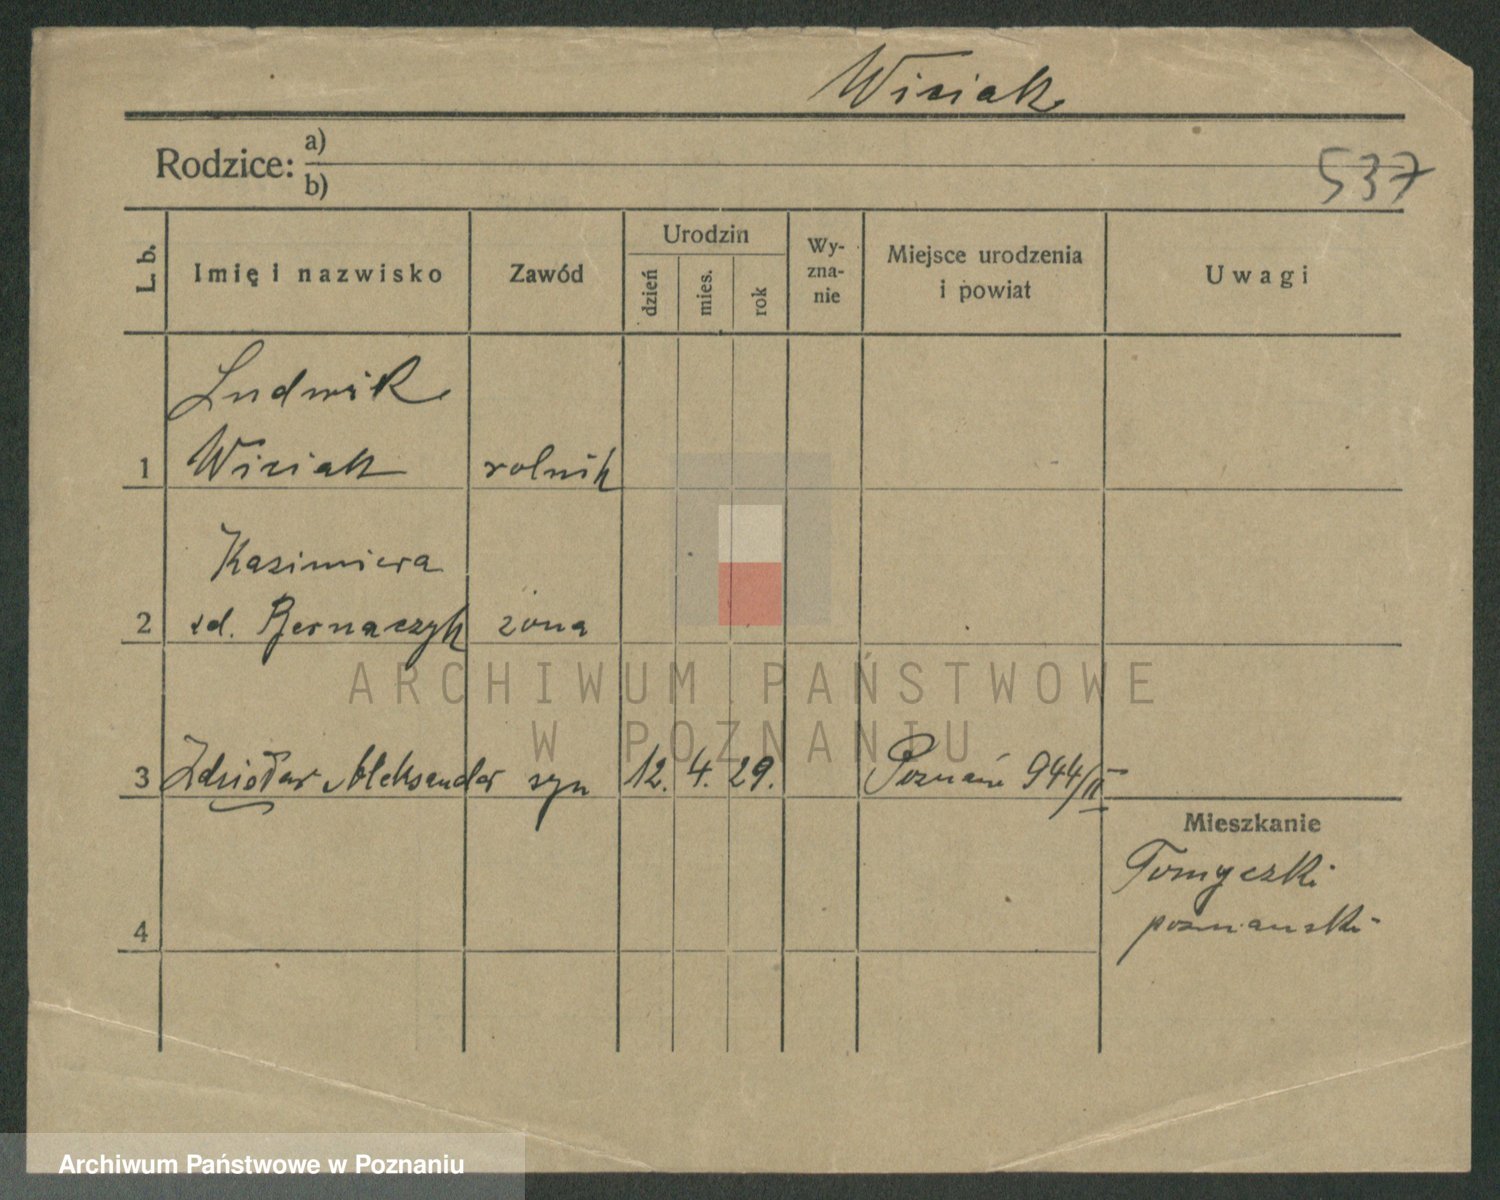 Wiciak
Rodzice: a)
b)
537
L. b.
Imię i nazwisko
Zawód
Urodzin
dzień
mies.
rok
Wy-
zna-
nie
Miejsce urodzenia
i powiat
Uwagi
Ludwik
1 Wiciak rolnik
Kazimiera
2 zd. Bernaczyk żona
3 Zdzisław Aleksander syn 12. 4. 29. Poznań 944/II
Mieszkanie
Tomyczki
poznański
4
ARCHIWUM PAŃSTWOWE
W POZNANIU
Archiwum Państwowe w Poznaniu